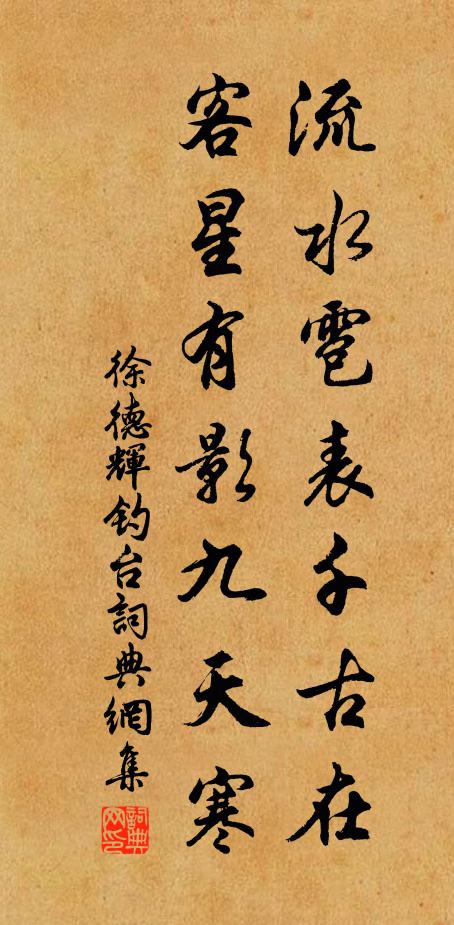 流水雹表千古在
客星有影九天寒
徐德輝钓台詞典網集
詞典网印